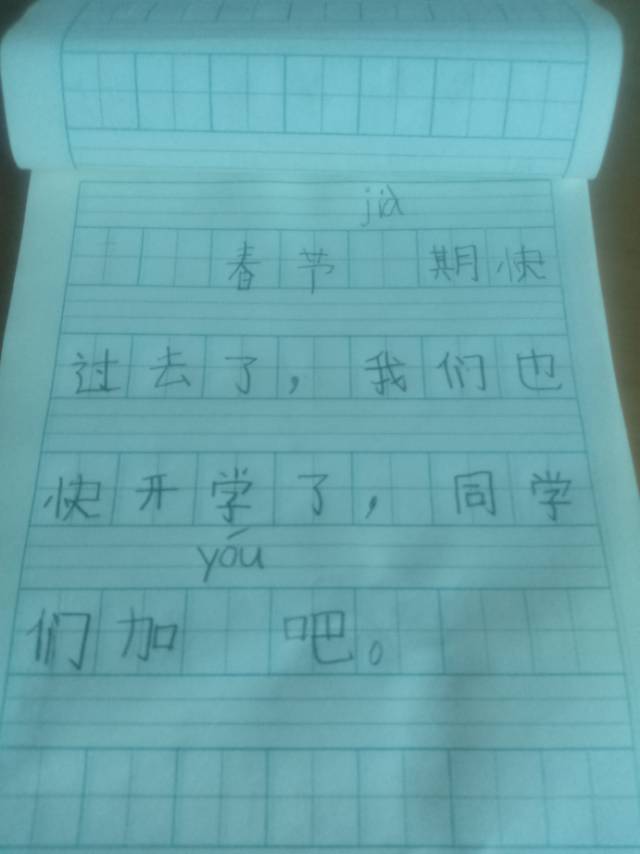 jià
春节 期快
过去了，我们也
快开学了，同学
yóu
们加 吧。